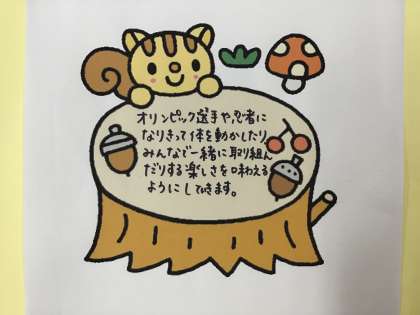 オリンピック選手や、忍者に
なりきって体を動かしたり
みんなで一緒に取り組ん
だりする楽しさを味わえる
ようにしていきます。